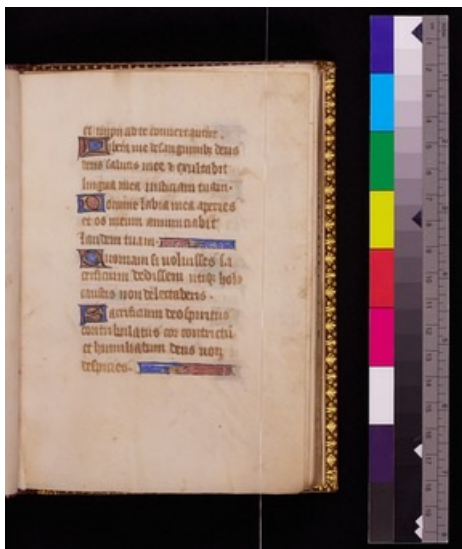 et impii ad te convertentur.
Libera me de sanguinibus deus
deus salutis mee & exultabit
lingua mea iusticiam tuam.
Domine labia mea aperies
et os meum annunciabit
laudem tuam.
Quoniam si voluisses sa
crificium dedissem utiqz holo
caustis non delectaberis.
Sacrificium deo spiritus
contribulatus cor contritū
et humiliatum deus non
despicies.